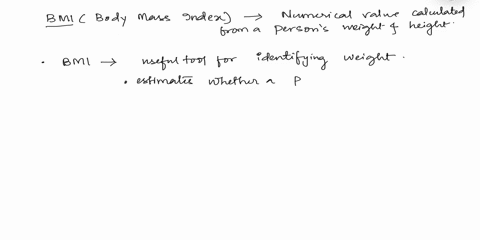 BMI ( Body Mass Index) → Numerical value calculated
from a person's weight & height.
• BMI → useful tool for identifying weight.
• estimates whether a P